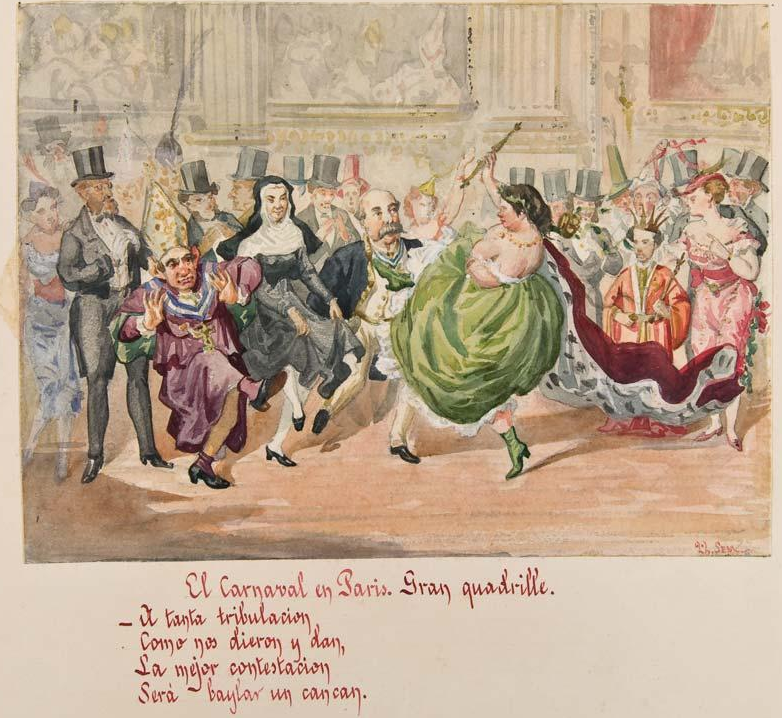 El Carnaval en Paris. Gran quadrille.
– A tanta tribulacion
Como nos dieron y dan,
La mejor contestacion
Será baylar un cancan.